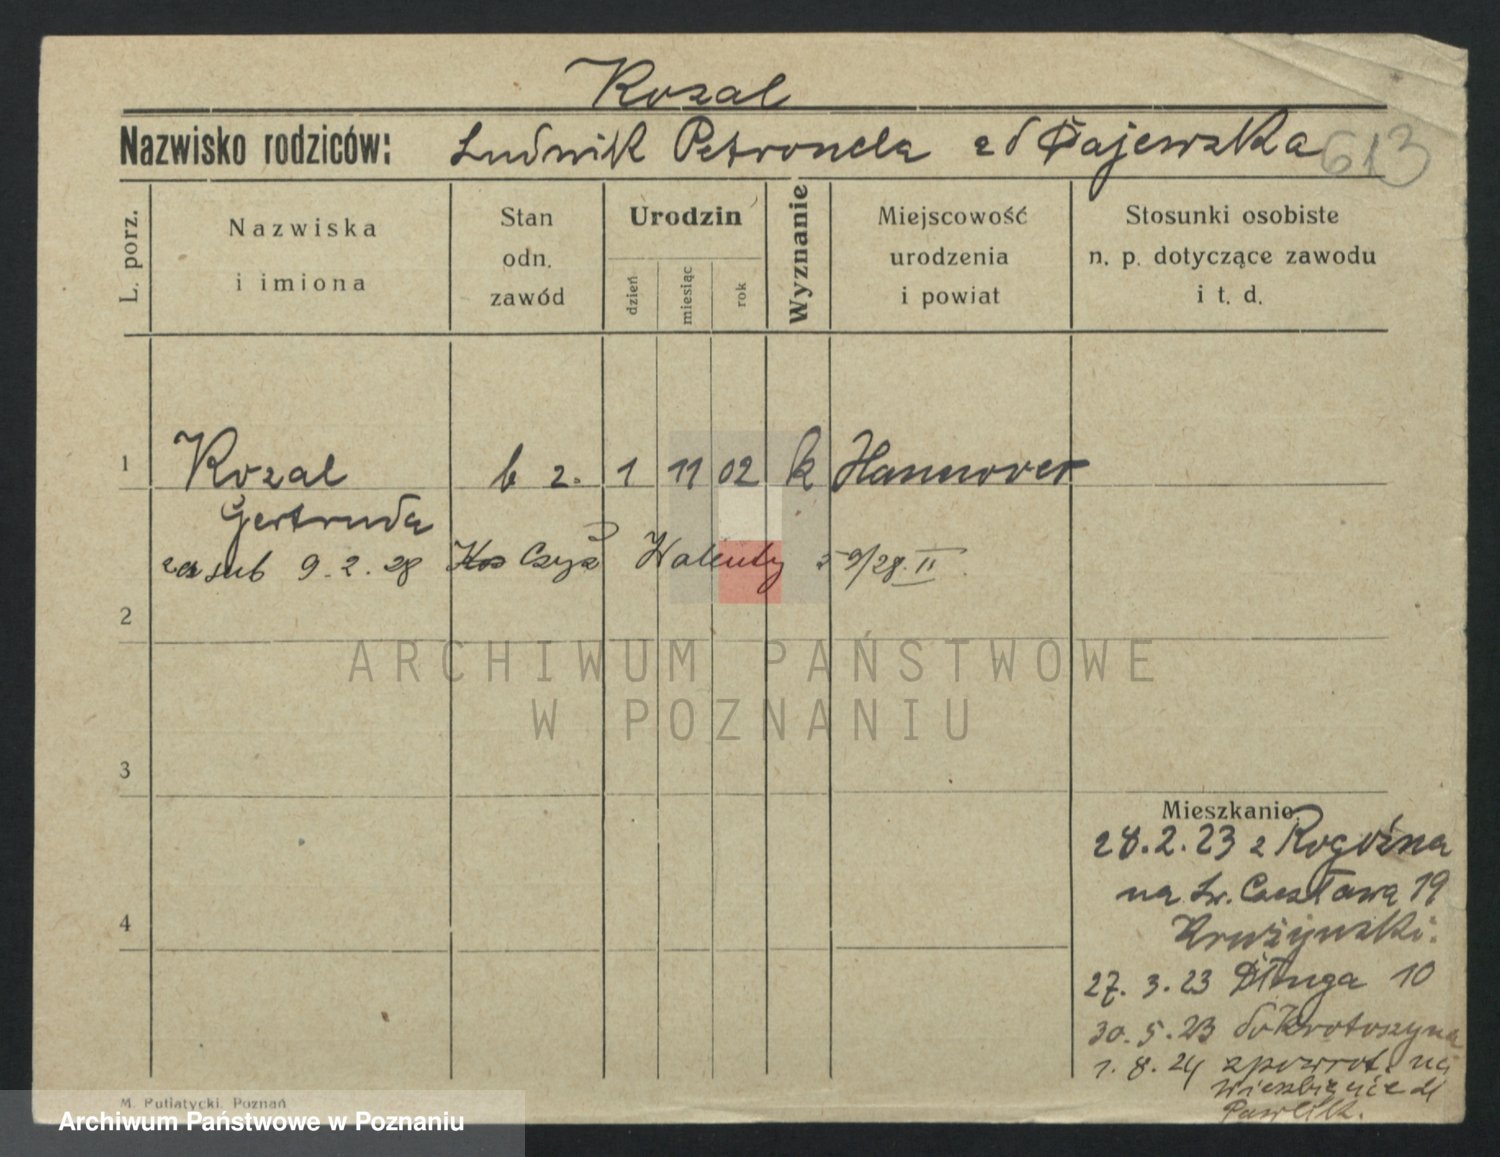 Kozal
Nazwisko rodziców: Ludwik Petronela zd Gajewska 613
L. porz.
Nazwiska
i imiona
Stan
odn.
zawód
Urodzin
dzień
miesiąc
rok
Wyznanie
Miejscowość
urodzenia
i powiat
Stosunki osobiste
n. p. dotyczące zawodu
i t. d.
1 Kozal b z. 1 11 02 k Hannover
Gertruda
za sub 9.2.28 Czyż Walenty 9/28. II
2
ARCHIWUM PAŃSTWOWE
W POZNANIU
3
4
Mieszkanie
28.2.23 z Rogoźna
na Św. Czesława 19
Krużyński.
27. 3. 23 Długa 10
30. 5. 23 do Krotoszyna
1. 8. 24 zpowrot. na
Wierzbięcice 21
Pawlik.
M. Putiatycki, Poznań
Archiwum Państwowe w Poznaniu